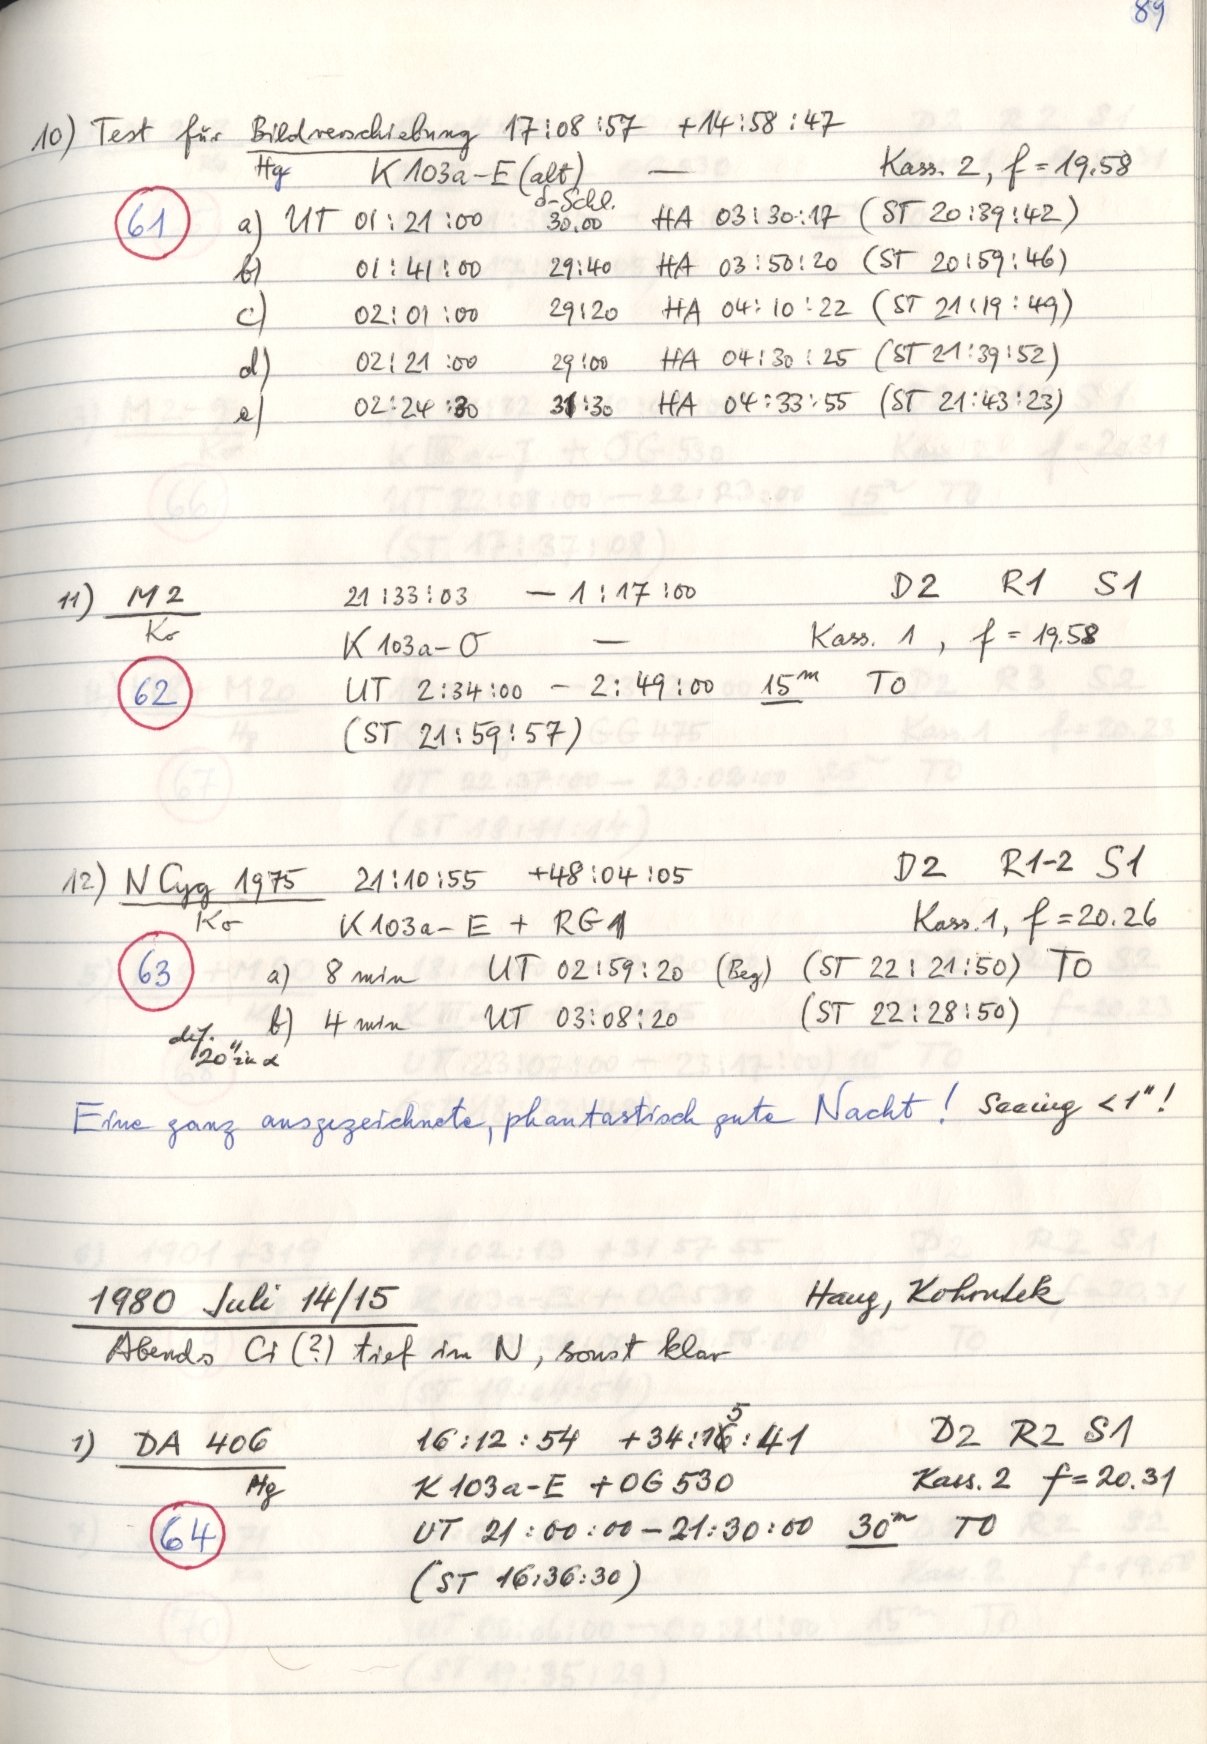 89
10) Test für Bildverschiebung 17:08:57 +14:58:47
Hg K 103a-E (alt) — Kass. 2, f = 19.58
δ-Schl.
61 a) UT 01:21:00 30.00 HA 03:30:17 (ST 20:39:42)
b) 01:41:00 29:40 HA 03:50:20 (ST 20:59:46)
c) 02:01:00 29:20 HA 04:10:22 (ST 21:19:49)
d) 02:21:00 29:00 HA 04:30:25 (ST 21:39:52)
e) 02:24:30 31:30 HA 04:33:55 (ST 21:43:23)
11) M 2 21:33:03 — 1:17:00 D2 R1 S1
Ko K 103a-O — Kass. 1, f = 19.58
62 UT 2:34:00 – 2:49:00 15m TO
(ST 21:59:57)
12) N Cyg 1975 21:10:55 +48:04:05 D2 R1-2 S1
Ko K 103a-E + RG1 Kass. 1, f = 20.26
63 a) 8 min UT 02:59:20 (Beg) (ST 22:21:50) TO
b) 4 min UT 03:08:20 (ST 22:28:50)
20" in α
Eine ganz ausgezeichnete, phantastisch gute Nacht! Seeing <1"!
1980 Juli 14/15 Haug, Kohoutek
Abends Ci (?) tief im N, sonst klar
5
1) DA 406 16:12:54 +34:16:41 D2 R2 S1
Hg K 103a-E + OG 530 Kass. 2 f = 20.31
64 UT 21:00:00 – 21:30:00 30m TO
(ST 16:36:30)